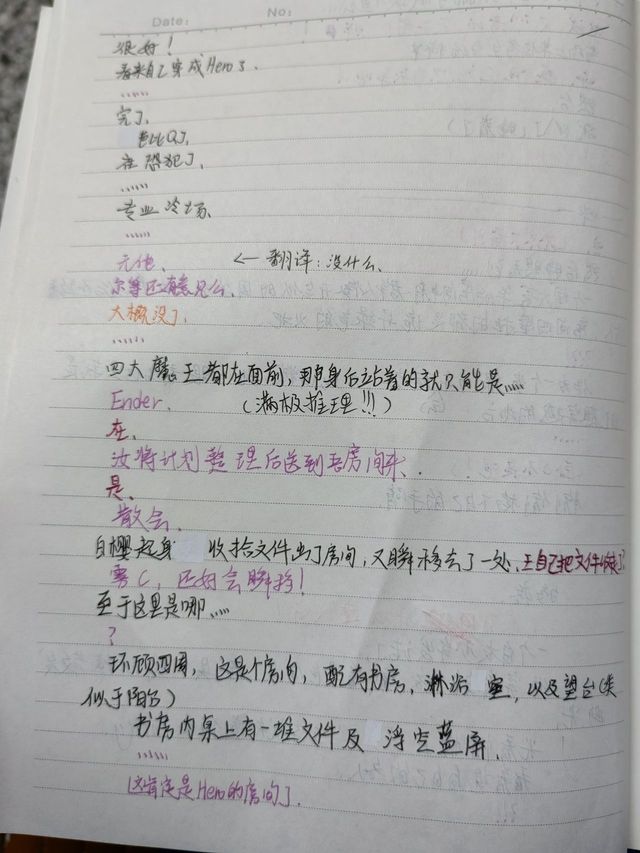 Date: No:
很好！
看来自己穿成Hero了.
……
完了,
BBQ了,
在恐犯了,
……
专业冷场.
……
无他. ← 翻译：没什么.
尔等还有意见么.
大概没了.
……
四大魔王都在面前，那身后站着的就只能是……
Ender. （满极推理!!!）
在.
汝将计划整理后送到吾房间来.
是.
散会.
白樱起身 收拾文件出了房间，又瞬移去了一处,
雾C，还好会瞬移！
至于这里是哪……
？
环顾四周，这是个房间，配有书房，淋浴室，以及望台(类
似于阳台)
书房内桌上有一堆文件及 浮空蓝屏.
……
这肯定是Hero的房间了.